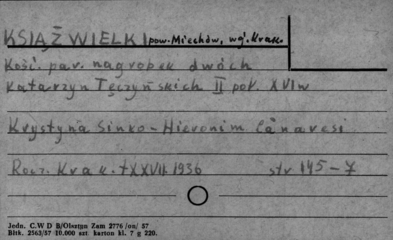 KSIĄŻ WIELKI pow. Miechów, woj. Krak.
Kość. par. nagrobek dwóch
Katarzyn Tęczyńskich II poł. XVI w
Krystyna Sinko - Hieronim Canavesi
Rocz. Krak. t XXVII 1936 str 145-7
Jedn. C.W D B/Olsztyn Zam 2776 /on/ 57
Bltk. 2563/57 10.000 szt karton kl. 7 g 220.